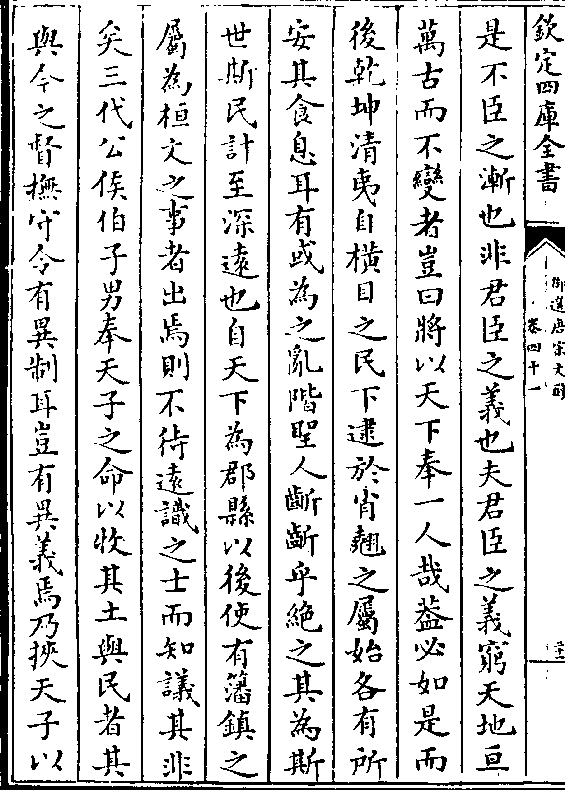 欽定四庫全書
御選唐宋文醇
卷四十一
是不臣之漸也非君臣之義也夫君臣之義窮天地亘
萬古而不變者豈曰將以天下奉一人哉葢必如是而
後乾坤清夷自橫目之民下逮於肖翹之屬始各有所
安其食息耳有或為之亂階聖人齗齗乎絶之其為斯
世斯民計至深遠也自天下為郡縣以後使有籓鎮之
屬為桓文之事者出焉則不待遠識之士而知議其非
矣三代公侯伯子男奉天子之命以牧其土與民者其
與今之督撫守令有異制耳豈有異義焉乃挾天子以